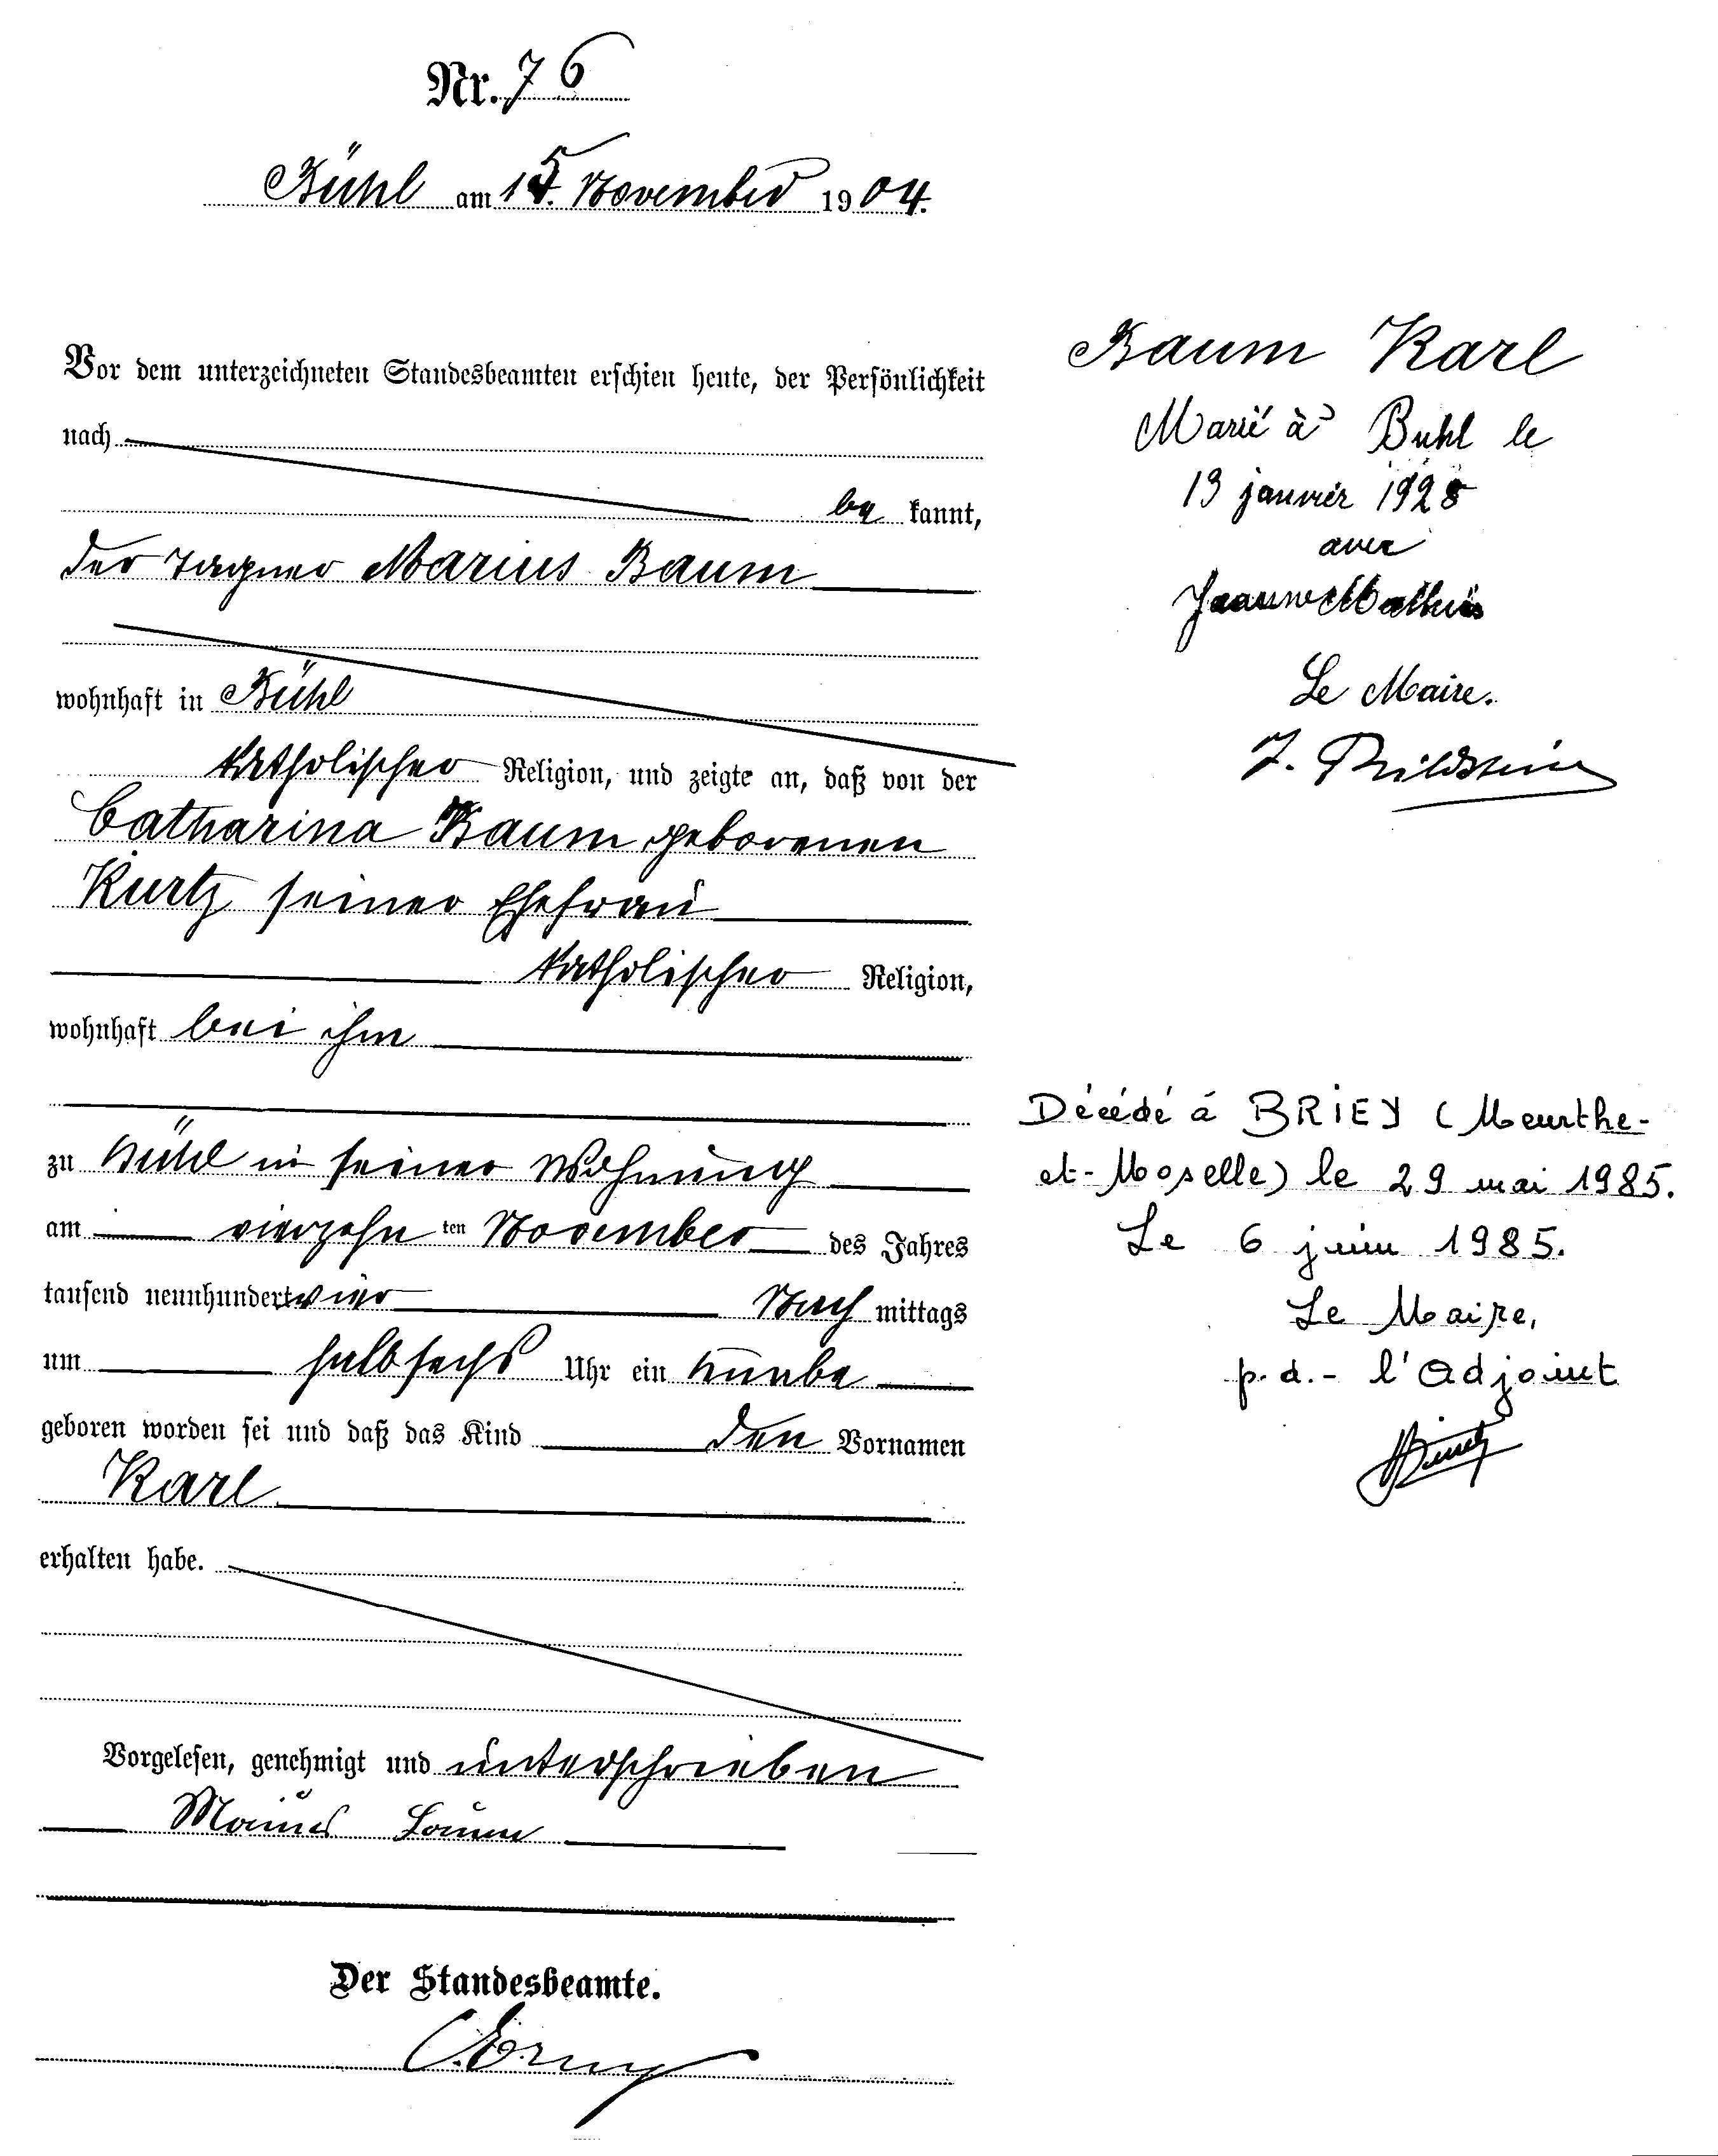 Nr. 76
Bühl am 15. November 1904.
Vor dem unterzeichneten Standesbeamten erschien heute, der Persönlichkeit
nach
be kannt,
der Tagner Marius Baum
wohnhaft in Bühl
katholischer Religion, und zeigte an, daß von der
Catharina Baum geborenen
Kurtz seiner Ehefrau
katholischer Religion,
wohnhaft bei ihm
zu Bühl in seiner Wohnung
am vierzehn ten November des Jahres
tausend neunhundert vier Nach mittags
um halb sechs Uhr ein Knabe
geboren worden sei und daß das Kind den Vornamen
Karl
erhalten habe.
Vorgelesen, genehmigt und unterschrieben
Marius Baum
Der Standesbeamte.
Baum Karl
Marié à Buhl le
13 janvier 1928
avec
Le Maire.
Décédé à BRIEY (Meurthe-
et-Moselle) le 29 mai 1985.
Le 6 juin 1985.
Le Maire,
p.d.- l'Adjoint